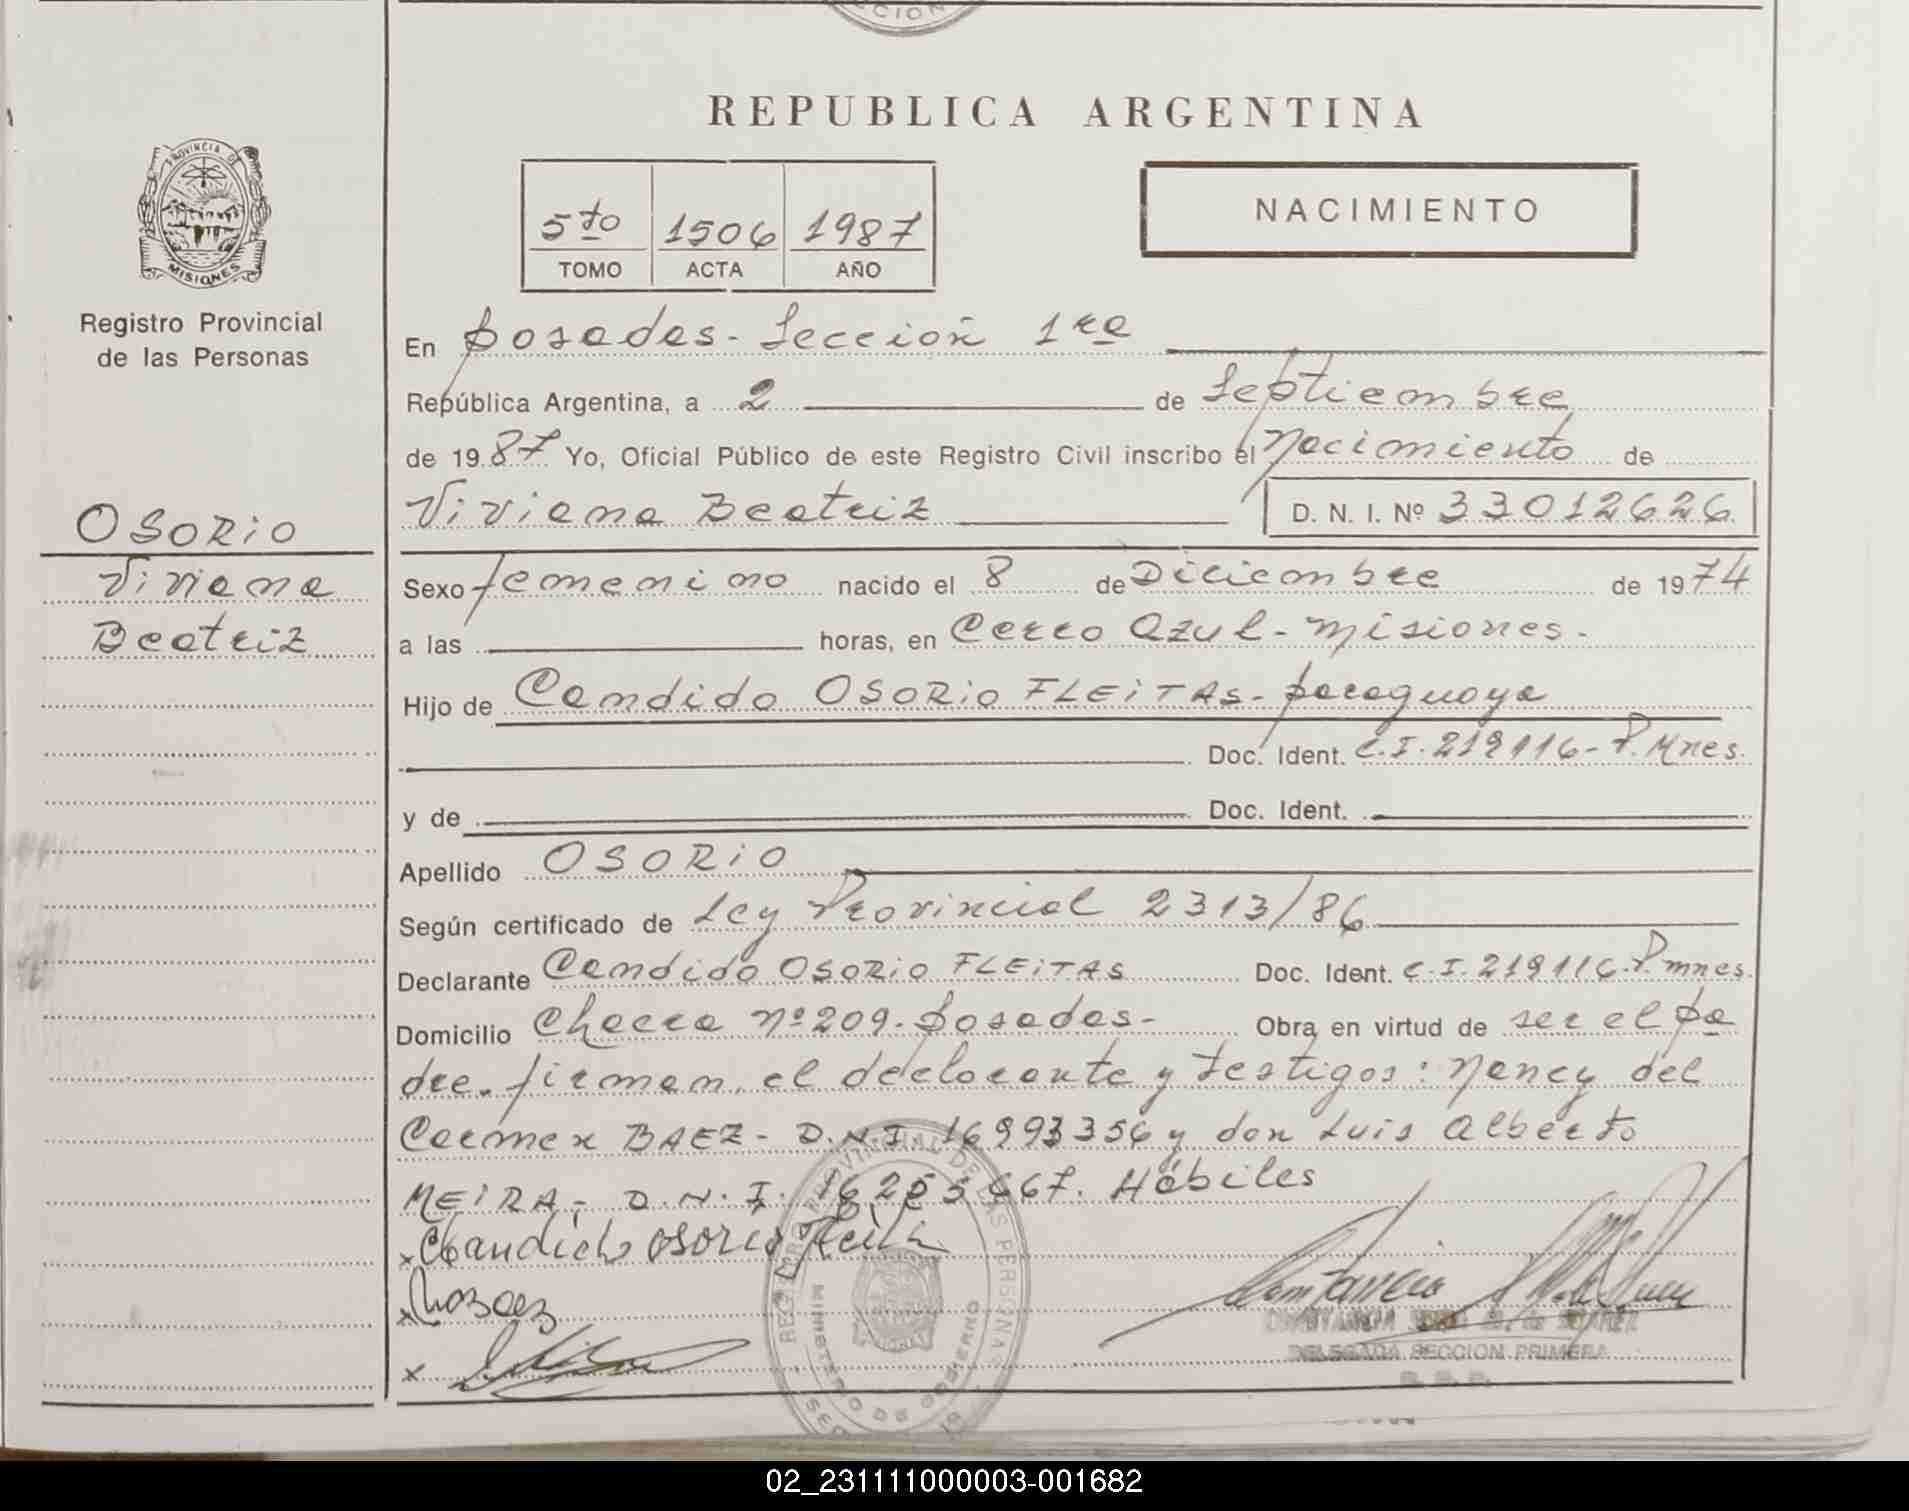 CCION
REPUBLICA ARGENTINA
PROVINCIA DE
MISIONES
Registro Provincial
de las Personas
5to 1506 1987
TOMO ACTA AÑO
NACIMIENTO
En Posadas - Sección 1ra
República Argentina, a 2 de Septiembre
de 1987 Yo, Oficial Público de este Registro Civil inscribo el Nacimiento de
Viviana Beatriz D. N. I. Nº 33012626
OSORIO
Viviana
Beatriz
Sexo femenino nacido el 8 de Diciembre de 1974
a las horas, en Cerro Azul - Misiones -
Hijo de Candido OSORIO FLEITAS - paraguaya
Doc. Ident. C.I. 219116 - P. Mnes.
y de Doc. Ident.
Apellido OSORIO
Según certificado de Ley Provincial 2313/86
Declarante Candido OSORIO FLEITAS Doc. Ident. C.I. 219116 - P. mnes.
Domicilio Chacra Nº 209 - Posadas - Obra en virtud de ser el pa
dre. firman, el declarante y testigos: Nancy del
Carmen BAEZ - D.N.I. 16993356 y don Luis Alberto
MEIRA - D.N.I. 667. Hábiles
x Candido osorio
x
x
REGISTRO PROVINCIAL DE LAS PERSONAS
MINISTERIO DE GOBIERNO
DELEGADA SECCION PRIMERA
02_231111000003-001682